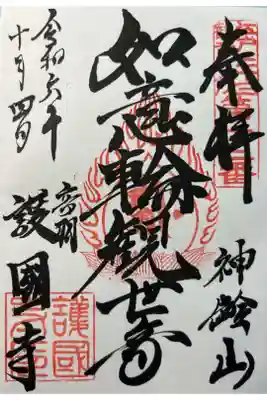 奉拝
神齢山
如意輪観世音
令和六年
十月四日
音羽
護國寺
護國寺